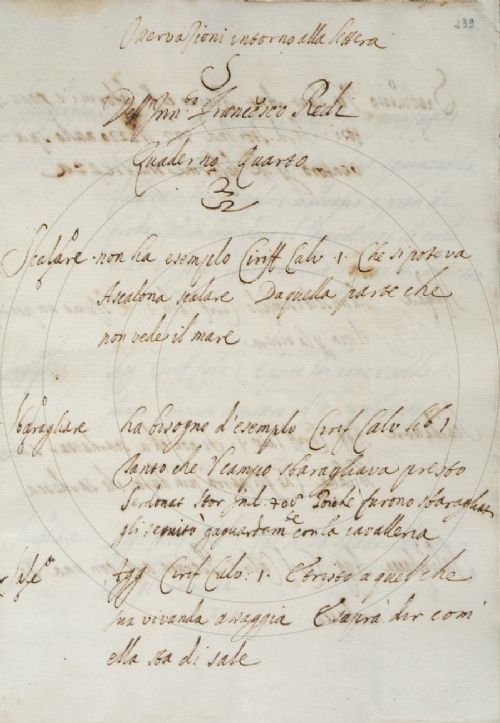 239
Osservazioni intorno alla lettera
S
Dell' Francesco Redi
Quaderno Quarto
Scalare non ha esempio Ciriff Calv. 1. Che si poteva
Ascalona scalare Da quella parte che
non vede il mare
Sbaragliare ha bisogno d'esempio Cirif Calv lib 1
Tanto che 'l campo sbaragliava presto
Serdonat Stor Ind. Poichè furono sbaragliat
gli seguitò con la cavalleria
Cirif Calv. 1. Tristo a quel che
vivanda assaggia E saprà dir com
ella sta di sale